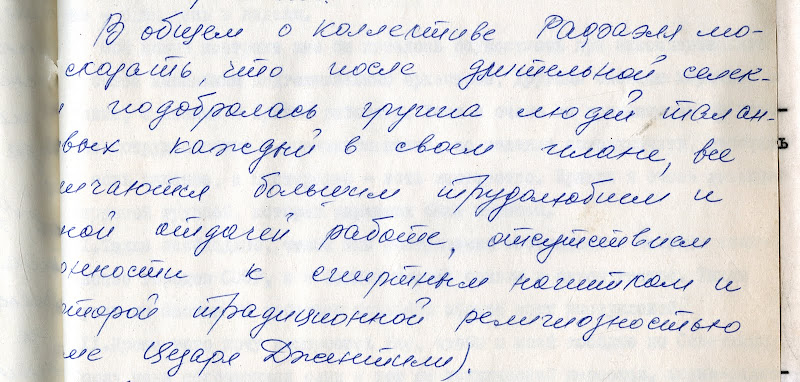 В общем о коллективе Рафаэля мо-
сказать, что после длительной селек-
и подобралась группа людей талан-
вых каждый в своем плане, все
ичаются большим трудолюбием и
ной отдачей работе, отсутствием
онности к спиртным напиткам и
оторой традиционной религиозностью
ме Цезаря Джентили).
ь